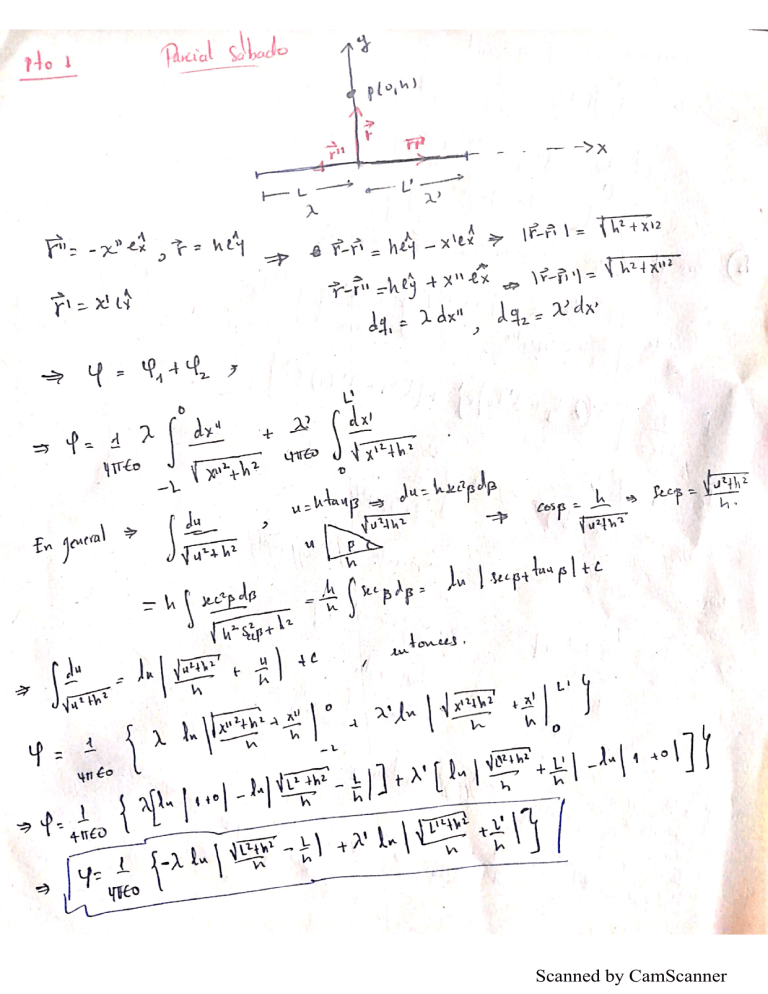 Pto 1 Parcial Sábado
y
p(0,h)
r⃗
r⃗'' r⃗'
→x
L L'
λ λ'
r⃗'' = -x'' êx , r⃗ = h êy ⇒ r⃗-r⃗' = hêy - x'êx ⇒ |r⃗-r⃗'| = √(h²+x'²)
r⃗' = x' êx r⃗-r⃗'' = hêy + x'' êx ⇒ |r⃗-r⃗''| = √(h²+x''²)
dq₁ = λ dx'' , dq₂ = λ' dx'
⇒ φ = φ₁ + φ₂ ,
⇒ φ = 1/4πε0 λ ∫_{-L}^{0} dx''/√(x''²+h²) + λ'/4πε0 ∫_{0}^{L'} dx'/√(x'²+h²) .
En general ⇒ ∫ du/√(u²+h²) , u = h tanβ ⇒ du = h sec²β dβ ⇒ cosβ = h/√(u²+h²) ⇒ secβ = √(u²+h²)/h .
u √(u²+h²) β h
= h ∫ sec²β dβ/√(h² sec²β + h²) = h/h ∫ secβ dβ = ln |secβ + tanβ| + c
⇒ ∫ du/√(u²+h²) = ln |√(u²+h²)/h + u/h| + c , entonces.
φ = 1/4πε0 { λ ln |√(x''²+h²)/h + x''/h| |_{-L}^{0} + λ' ln |√(x'²+h²)/h + x'/h| |_{0}^{L'} }
⇒ φ = 1/4πε0 { λ[ln |1+0| - ln |√(L²+h²)/h - L/h|] + λ' [ln |√(L'²+h²)/h + L'/h| - ln |1+0|] }
⇒ φ = 1/4πε0 {-λ ln |√(L²+h²)/h - L/h| + λ' ln |√(L'²+h²)/h + L'/h| }
Scanned by CamScanner